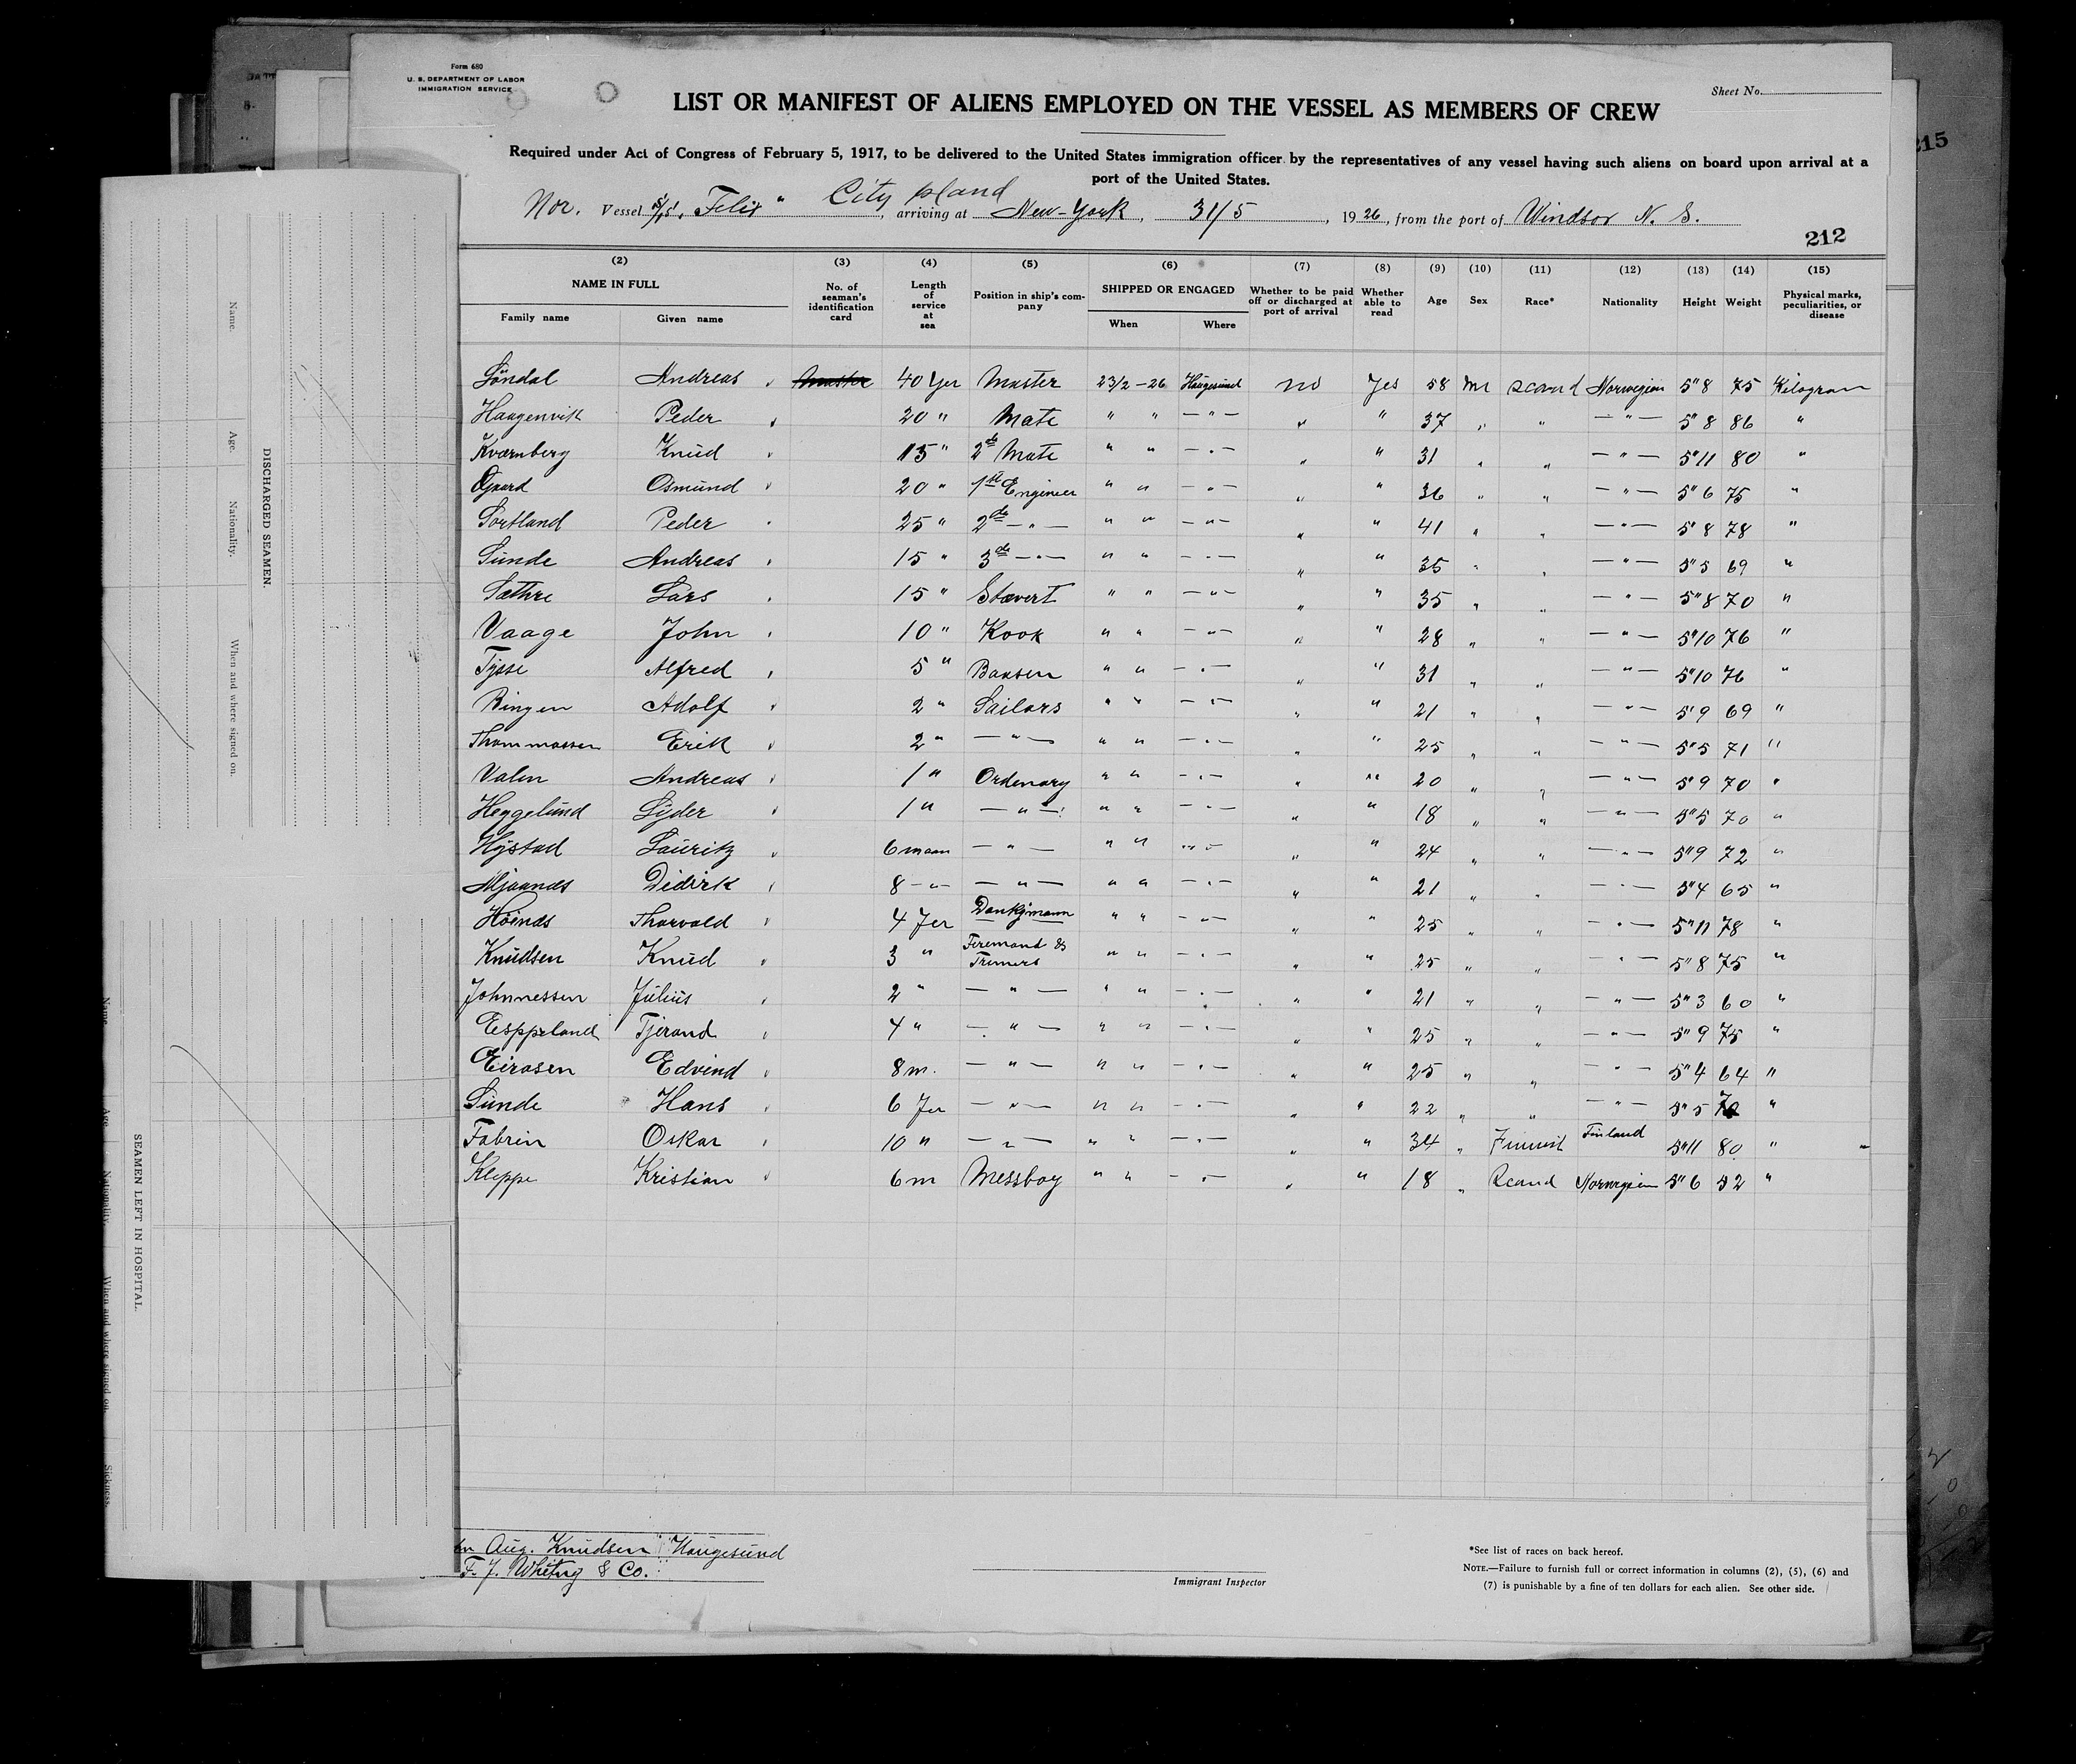 Form 680
U. S. DEPARTMENT OF LABOR
IMMIGRATION SERVICE
Sheet No.
LIST OR MANIFEST OF ALIENS EMPLOYED ON THE VESSEL AS MEMBERS OF CREW
Required under Act of Congress of February 5, 1917, to be delivered to the United States immigration officer by the representatives of any vessel having such aliens on board upon arrival at a
port of the United States.
City Island
Nor. Vessel S/S. Felix ", arriving at New-York, 31/5, 1926, from the port of Windsor N. S.
212
215
(2) (3) (4) (5) (6) (7) (8) (9) (10) (11) (12) (13) (14) (15)
NAME IN FULL No. of seaman's identification card Length of service at sea Position in ship's company SHIPPED OR ENGAGED Whether to be paid off or discharged at port of arrival Whether able to read Age Sex Race* Nationality Height Weight Physical marks, peculiarities, or disease
Family name Given name When Where
Söndal Andreas 40 Yer Master 23/2-26 Haugesund no Yes 58 m scand Norwegian 5"8 75 Kilogram
Haugenvik Peder 20 " Mate " " — " — " " 37 " " — " — 5"8 86 "
Kvarnberg Knud 15 " 2de Mate " " — " — " " 31 " " — " — 5"11 80 "
Osmund 20 " 1st Engineer " " — " — " " 36 " " — " — 5"6 75 "
Sortland Peder 25 " 2de — " — " " — " — " " 41 " " — " — 5"8 78 "
Sunde Andreas 15 " 3de — " — " " — " — " " 35 " " — " — 5"5 69 "
Sæthre Lars 15 " Stævert " " — " — " " 35 " " — " — 5"8 70 "
Vaage John 10 " Kook " " — " — " " 28 " " — " — 5"10 76 "
Tysse Alfred 5 " Baasen " " — " — " " 31 " " — " — 5"10 76 "
Ringen Adolf 2 " Sailors " " — " — " " 21 " " — " — 5"9 69 "
Thommassen Erik 2 " — " — " " — " — " " 25 " " — " — 5"5 71 "
Valen Andreas 1 " Ordenary " " — " — " " 20 " " — " — 5"9 70 "
Heggelund Lyder 1 " — " — " " — " — " " 18 " " — " — 5"5 70 "
Hystad Lauritz 6 maan — " — " " — " — " " 24 " " — " — 5"9 72 "
Mjaanes Didirk 8 — " — — " — " " — " — " " 21 " " — " — 5"4 65 "
Höines Thorvald 4 Yer Dankjmann " " — " — " " 25 " " — " — 5"11 78 "
Knudsen Knud 3 " Feremand & Trimers " " — " — " " 25 " " — " — 5"8 75 "
Johnnessen Julius 2 " — " — " " — " — " " 21 " " — " — 5"3 60 "
Eeppeland Tjerand 4 " — " — " " — " — " " 25 " " — " — 5"9 75 "
Eirosen Edvind 8 m. — " — " " — " — " " 25 " " — " — 5"4 64 "
Sunde Hans 6 Yer — " — " " — " — " " 22 " " — " — 5"5 "
Fabrin Oskar 10 " — " — " " — " — " " 34 " Finnish Finland 5"11 80 "
Kleppe Kristian 6 m Messboy " " — " — " " 18 " Scand Norwegian 5"6 52 "
Aug. Knudsen Haugesund
F. J. Whitney & Co.
Immigrant Inspector
*See list of races on back hereof.
NOTE.—Failure to furnish full or correct information in columns (2), (5), (6) and
(7) is punishable by a fine of ten dollars for each alien. See other side.
DISCHARGED SEAMEN.
Name. Age. Nationality. When and where signed on.
SEAMEN LEFT IN HOSPITAL.
Name. Age. Nationality. When and where signed on. Sickness.